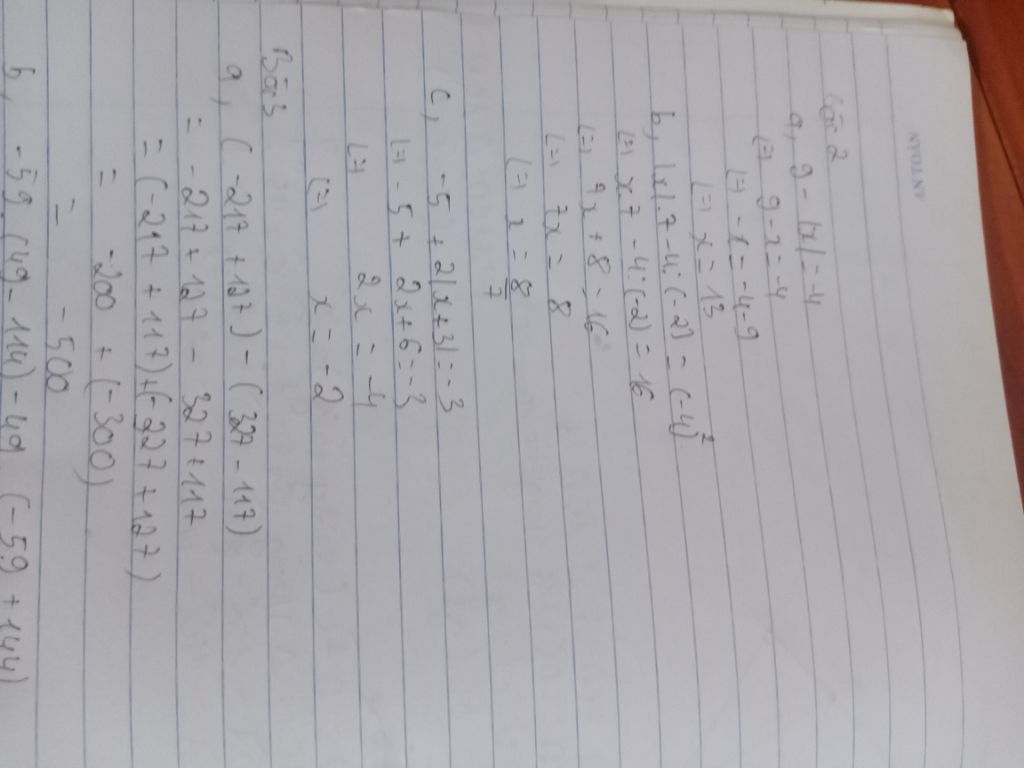 ANTOLYN
Bài 2
a, 9 - |x| = -4
(=) 9 - x = -4
(=) -x = -4-9
(=) x = 13
b, |x|.7 - 4.(-2) = (-4)²
(=) x7 - 4.(-2) = 16
(=) 7x + 8 = 16
(=) 7x = 8
(=) x = 8/7
c, -5 + 2|x+3| = -3
(=) -5 + 2x+6 = -3
(=) 2x = -4
(=) x = -2
Bài 3
a, (-217 + 127) - (327 - 117)
= -217 + 127 - 327 + 117
= (-217 + 117) + (-327 + 127)
= -200 + (-300)
= -500
b, -59.(49 - 114) - 49.(-59 + 144)